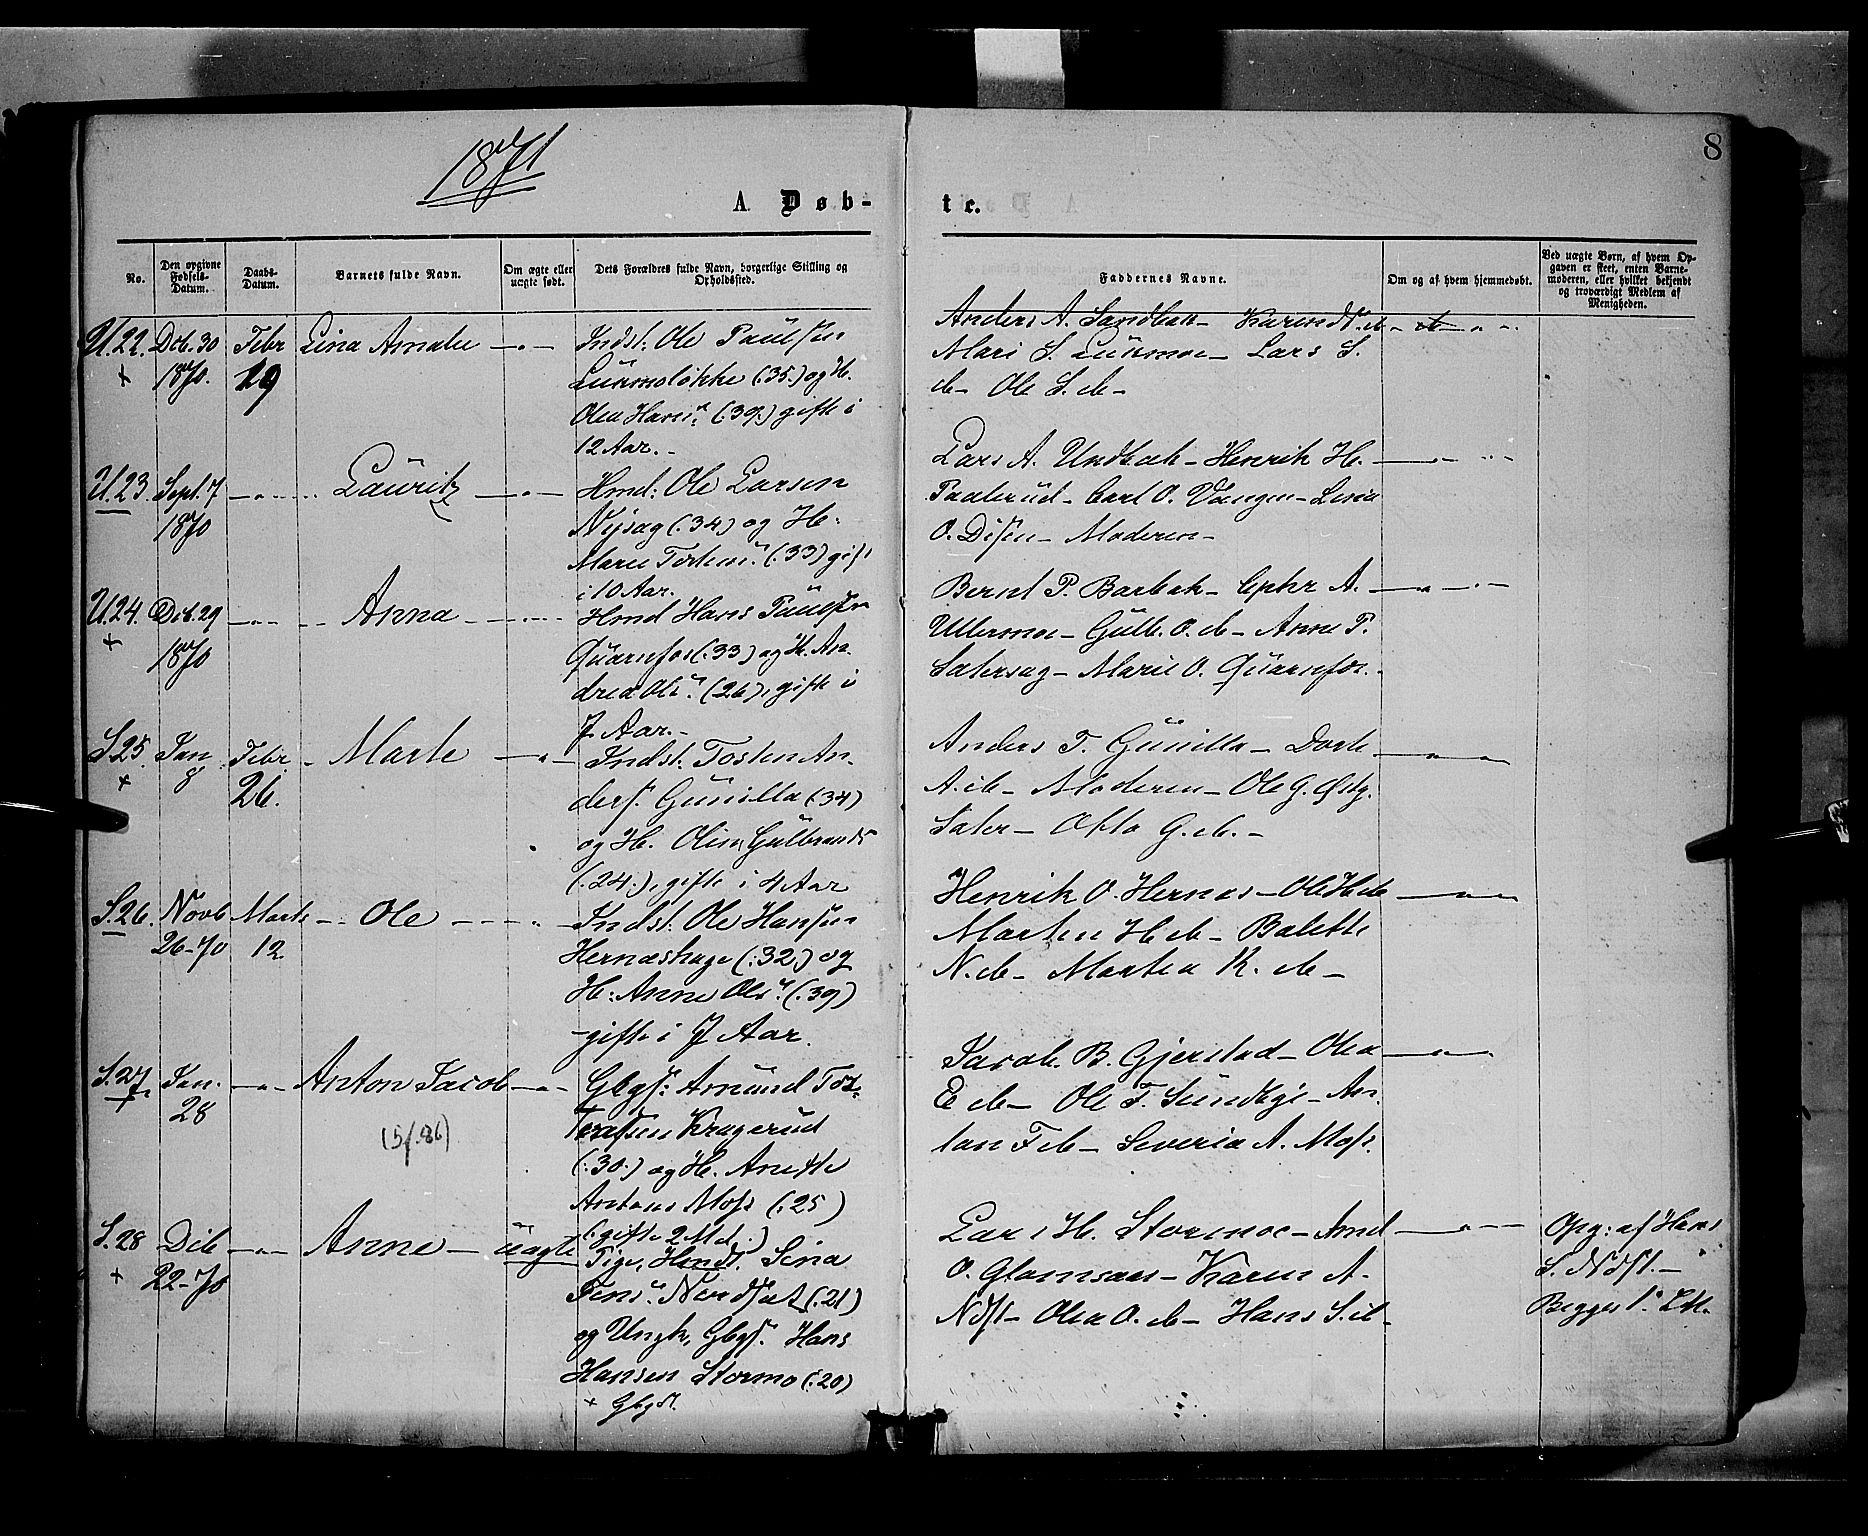 1871
8
A Døb-
te.
No.
Den opgivne Fødsels-Datum.
Daabs-Datum.
Barnets fulde Navn.
Om ægte eller uægte født.
Dets Forældres fulde Navn, borgerlige Stilling og Opholdssted.
Faddernes Navne.
Om og af hvem hjemmedøbt.
Ved uægte Børn, af hvem Opgaven er skeet, enten Barnemoderen, eller hvilket bekjendt og troværdigt Medlem af Menigheden.
U.22. Dcb. 30 1870. Febr 19 Lina Amalie
Indst. Ole Paulsen
(.35.) og H.
Olea Hansd. (.39.) gifte i
12 Aar.
Anders A. Sandbak
Mari S. Lars S.
d - Ole S. d -
U.23. Sept. 7 1870 Lauritz
Hmd: Ole Larsen
Nysag (.34) og H:
Maren (.33) gift
i 10 Aar.
Lars A. Undbak - Henrik H.
Paaterud - Carl O. Vangen - Lina
O. Disen - Moderen -
U.24. Dcb. 29 1870 Anna
Hmd Hans Paulsen
Quarnfos (.33) og H. An-
drea Olsd. (26), gifte i
7 Aar.
Bernt P. Barbak - Cphr A.
Ullermoe - Gulb. O. d - Anne P.
Satersag - Marie O. Quarnfos.
S.25. Jan 8 Febr. 26. Marte
Indst. Tosten An-
ders. Gunilla (.34)
og H. Oline Gulbrandsd
(.24.), gifte i 4 Aar
Anders T. Gunilla - Dorte
A. d - Moderen - Ole G. Østg.
Sater - G. d. -
S.26. Novb 26-70 Marts 12 Ole
Indst. Ole Hansen
Hernæshage (.32.) og
H: Anne Olsd. (.39)
gifte i 7 Aar.
Henrik O. Hernæs - Ole H d
Marten H d - Balette
N. d - Martea K. d -
S.27. Jan. 28 Anton Jacob
(5/.86)
Gbgs. Amund
Kragerud
(.30.) og H. Anette
Antons Moss (.25)
(gifte 2 Md.)
Jacob B. Gjerstad - Olea
E d - Ole F. Sundbye - An-
ton F d - Severia A. Moss.
S.28 Dcb 22-70 Anne uægte
Pige, Hmdt. Lina
Jensd. Nordset (.21)
og Ungk, Gbgs. Hans
Hansen Stormo (.20)
+ Gbgs.
Lars H. Stormoe - Amd
O. Glomsaas - Karen A.
Ndst - Olea O. d - Hans S. d -
Opg: af Hans
S. Ndst. -
Begges 1ste Lth.